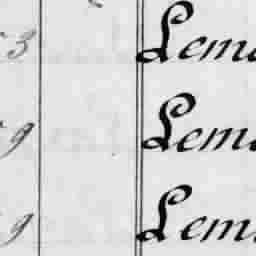 3 Lem
9 Lem
9 Lem